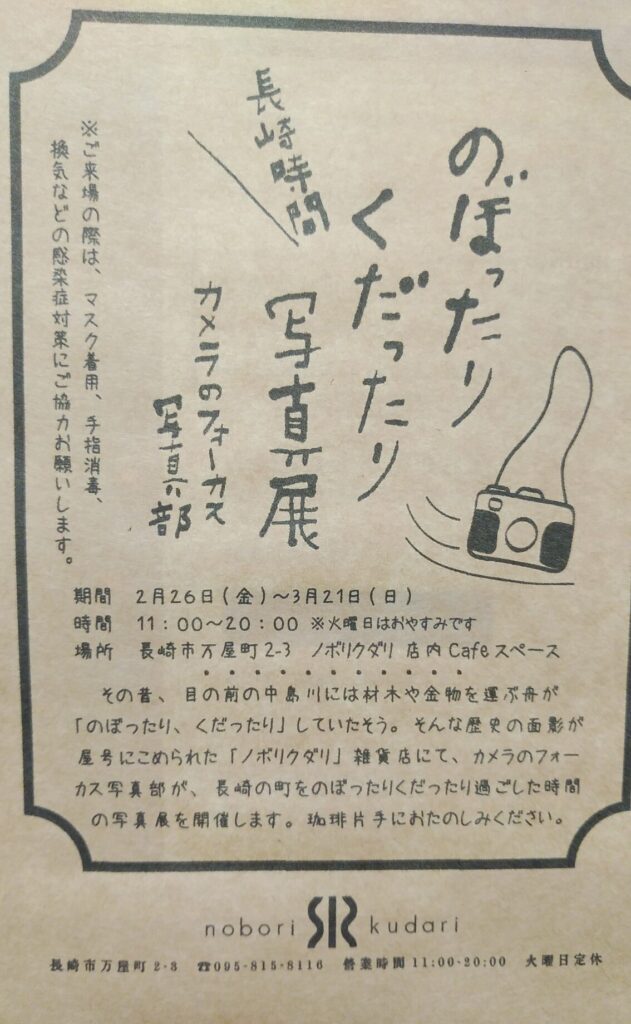 のぼったり
くだったり
長崎時間
写真展
カメラのフォーカス
写真部
※ご来場の際は、マスク着用、手指消毒、
換気などの感染症対策にご協力お願いします。
期間 2月26日(金)～3月21日(日)
時間 11:00～20:00 ※火曜日はおやすみです
場所 長崎市万屋町2-3 ノボリクダリ 店内Cafeスペース
その昔、目の前の中島川には材木や金物を運ぶ舟が
「のぼったり、くだったり」していたそう。そんな歴史の面影が
屋号にこめられた「ノボリクダリ」雑貨店にて、カメラのフォー
カス写真部が、長崎の町をのぼったりくだったり過ごした時間
の写真展を開催します。珈琲片手におたのしみください。
nobori kudari
長崎市万屋町2-3 ☎095-815-8116 営業時間11:00-20:00 火曜日定休